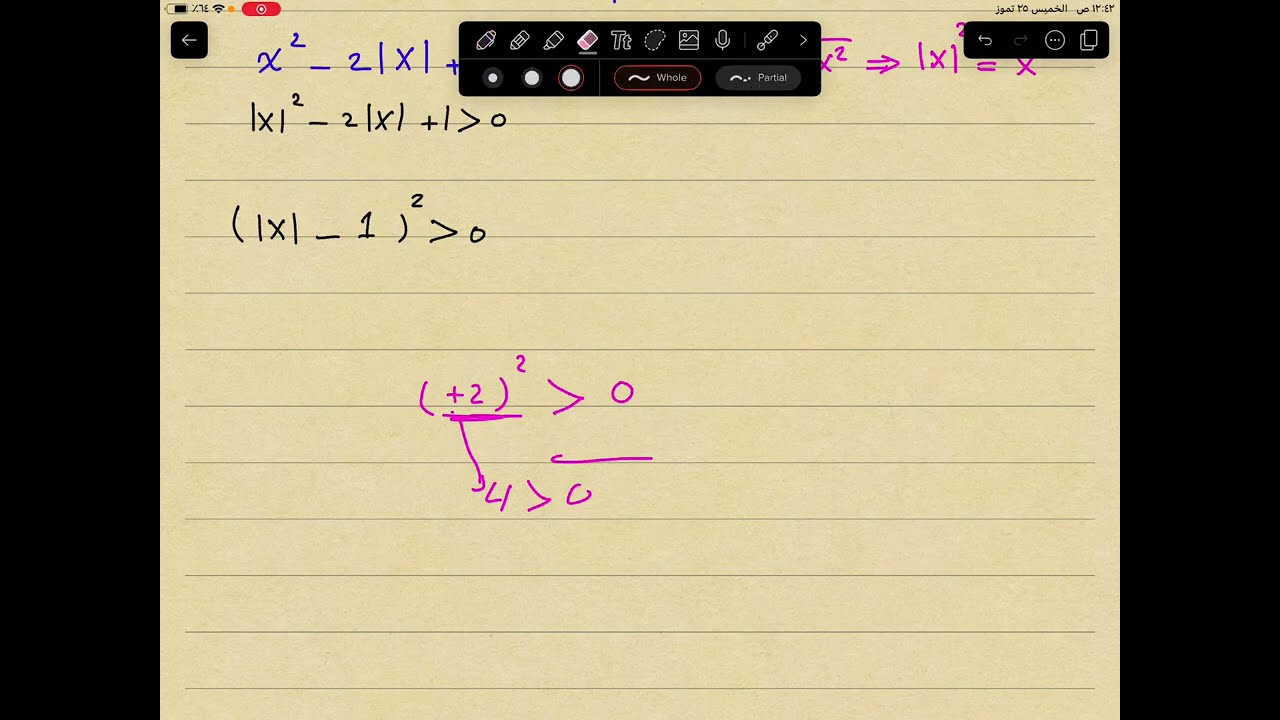 ٪٦٤ الخميس ٢٥ تموز ١٢:٤٢ ص
Tt Whole Partial
x² - 2|x| + x² ⇒ |x|² = x
|x|² - 2|x| + 1 > 0
(|x| - 1)² > 0
(+2)² > 0
4 > 0